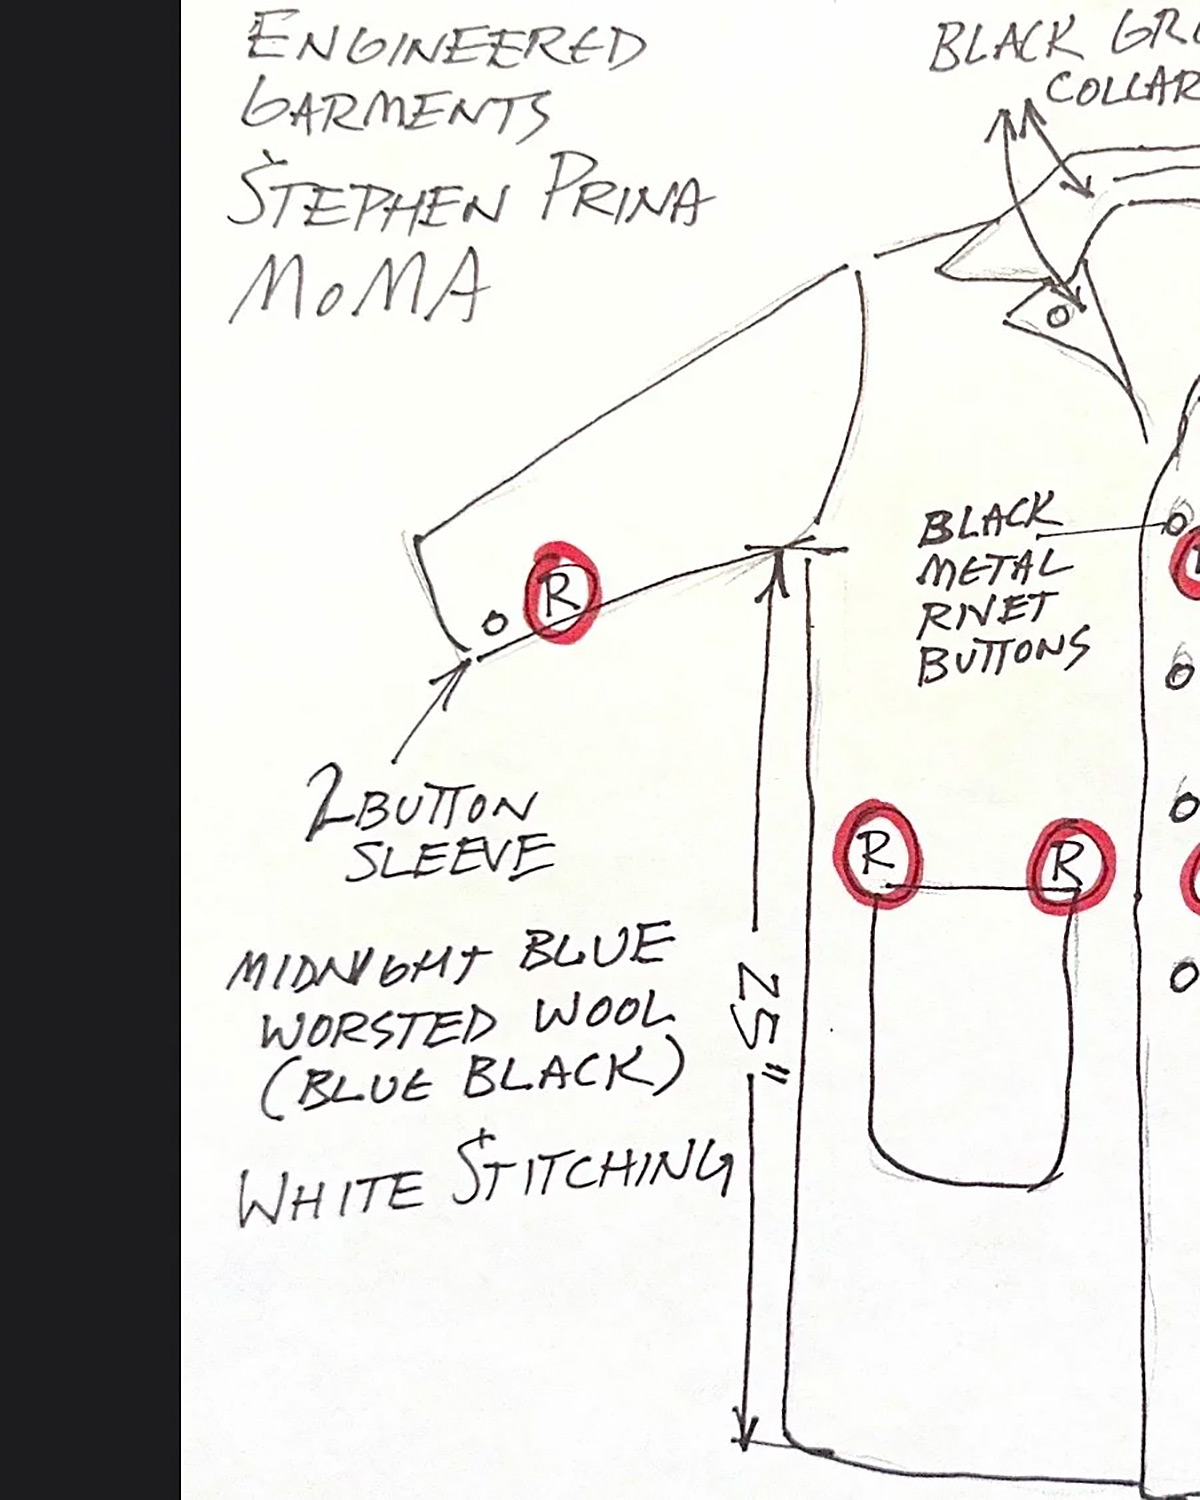 ENGINEERED
GARMENTS
STEPHEN PRINA
MOMA
BLACK
COLLAR
BLACK
METAL
RIVET
BUTTONS
R
2 BUTTON
SLEEVE
R
R
MIDNIGHT BLUE
WORSTED WOOL
(BLUE BLACK)
25"
WHITE STITCHING